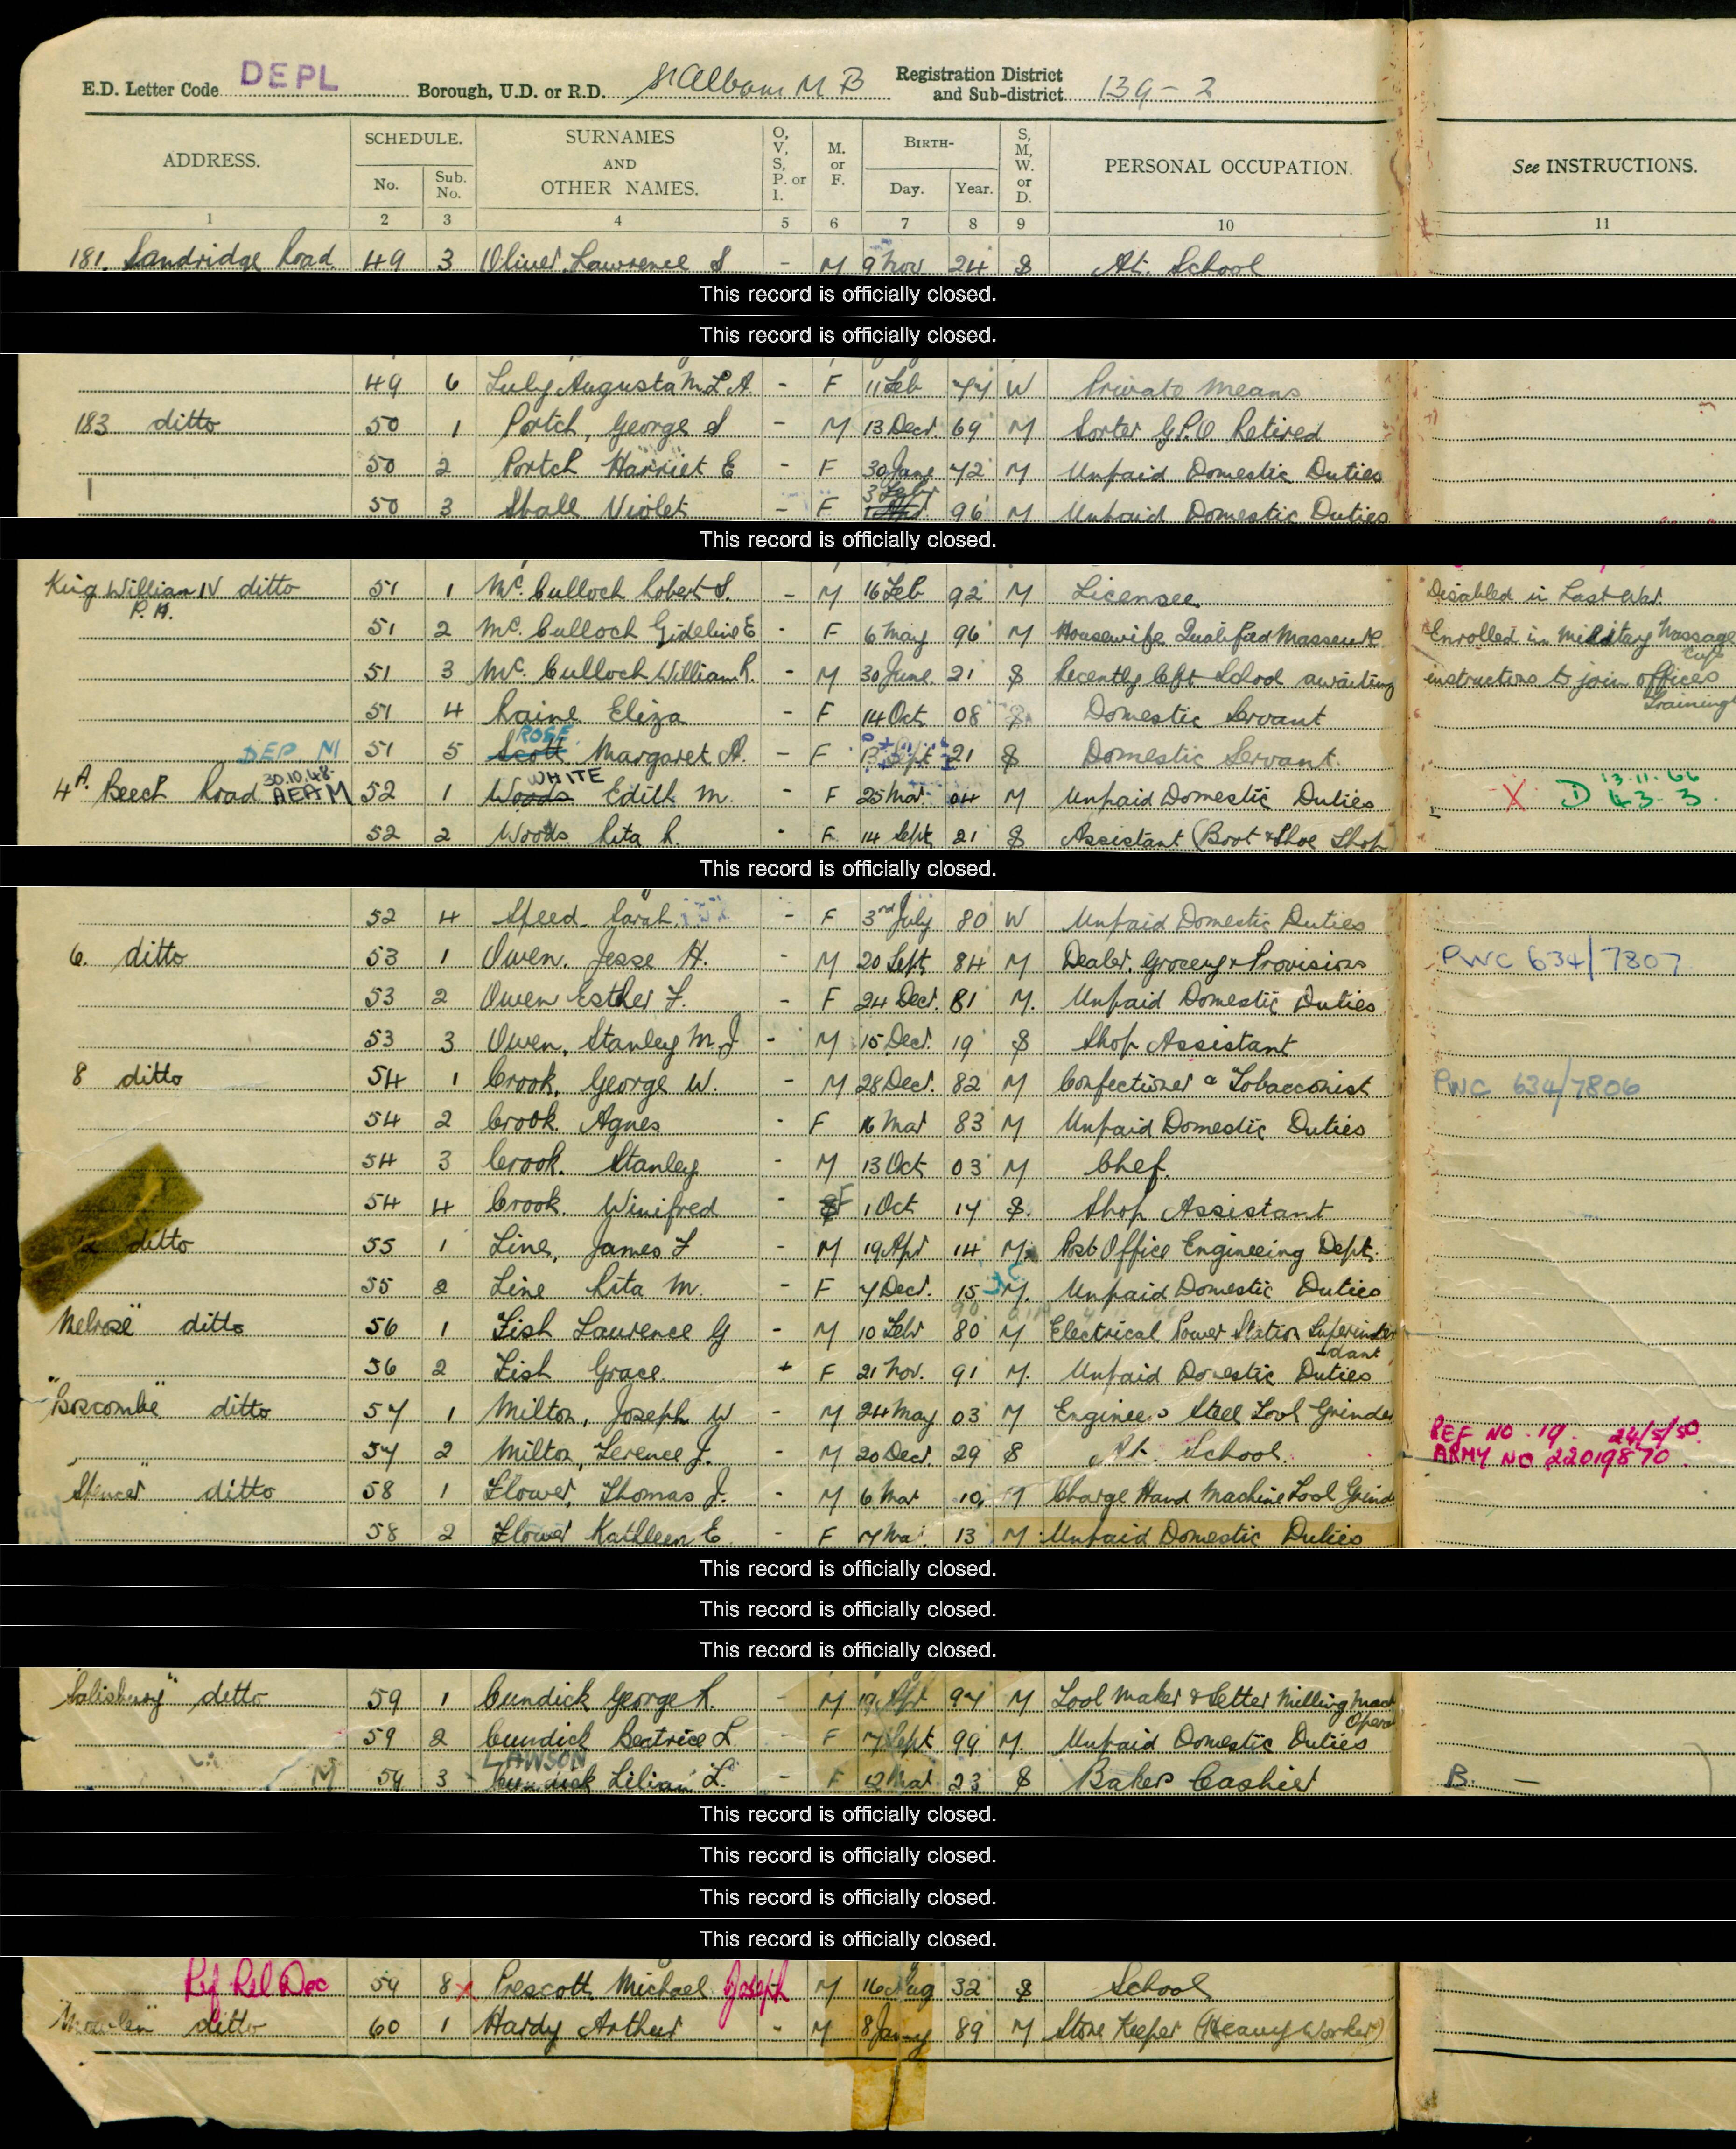 E.D. Letter Code DEPL Borough, U.D. or R.D. St Albans M B Registration District and Sub-district 139-2
ADDRESS. SCHEDULE. No. Sub. No. SURNAMES AND OTHER NAMES. O, V, S, P. or I. M. or F. BIRTH- Day. Year. S, M, W. or D. PERSONAL OCCUPATION. See INSTRUCTIONS.
1 2 3 4 5 6 7 8 9 10 11
181. Sandridge Road 49 3 Oliver, Lawrence S - M 9 Nov 24 S At School
This record is officially closed.
This record is officially closed.
49 6 Augusta M.L.A. - F 11 Feb 77 W Private Means
183 ditto 50 1 Portch, George S - M 13 Decr. 69 M Sorter G.P.O Retired
50 2 Portch Harriet E - F 30 June 72 M Unpaid Domestic Duties
50 3 Violet - F 3 96 M Unpaid Domestic Duties
This record is officially closed.
King William IV ditto P.H. 51 1 Mc. Culloch Robert S. - M 16 Feb 92 M Licensee. Disabled in Last War
51 2 Mc. Culloch E - F 6 May 96 M Housewife Qualified Masseuse Enrolled in military Massage
51 3 Mc. Culloch William R. - M 30 June 21 S Recently left School awaiting instructions to join officers Training
51 4 Raine Eliza - F 14 Oct 08 S Domestic Servant
DEP. NI 51 5 Scott ROSE Margaret A. - F Sept 21 S Domestic Servant.
4A. Beech Road 30.10.48 AEAM 52 1 Woods WHITE Edith M. - F 25 Mar 04 M Unpaid Domestic Duties X D 13.11.66 43. 3.
52 2 Woods Rita R. - F 14 Sept 21 S Assistant (Boot & Shoe Shop
This record is officially closed.
52 4 Speed Sarah - F 3rd July 80 W Unpaid Domestic Duties
6. ditto 53 1 Owen. Jesse H. - M 20 Sept 84 M Dealer. Grocery & Provisions PWC 634/7807
53 2 Owen Esther F. - F 24 Decr. 81 M. Unpaid Domestic Duties
53 3 Owen, Stanley M. J. - M 15 Decr. 19 S Shop Assistant
8 ditto 54 1 Crook, George W. - M 28 Decr. 82 M Confectioner & Tobacconist PWC 634/7806
54 2 Crook. Agnes - F 16 Mar 83 M Unpaid Domestic Duties
54 3 Crook. Stanley - M 13 Oct 03 M Chef.
54 4 Crook. Winifred - F 1 Oct 17 S. Shop Assistant
ditto 55 1 Line, James F - M 19 Apr 14 M Post Office Engineering Dept.
55 2 Line Rita M. - F 7 Decr. 15 M. Unpaid Domestic Duties
"Melrose" ditto 56 1 Fish Laurence G - M 10 Febr 80 M Electrical Power Station Superintendant
56 2 Fish Grace - F 21 Nov. 91 M. Unpaid Domestic Duties
"Boscombe" ditto 57 1 Milton, Joseph W - M 24 May 03 M Engineers Steel Tool Grinder
57 2 Milton, Terence J. - M 20 Decr 29 S At School. REF NO. 19. 24/5/50. ARMY NO 22019870.
"Spencer" ditto 58 1 Flower, Thomas J. - M 6 Mar 10 M Charge Hand Machine Tool Grind
58 2 Flower Kathleen E. - F 7 Mar. 13 M. Unpaid Domestic Duties
This record is officially closed.
This record is officially closed.
This record is officially closed.
"Salisbury" ditto 59 1 Cundick George R. - M 19 Apr 97 M Tool Maker & Setter Milling Mach Opera
59 2 Cundick Beatrice L - F 7 Sept 99 M. Unpaid Domestic Duties
M 59 3 Cundick LAWSON Lilian L. - F 12 Mar. 23 S Bakers Cashier B. -
This record is officially closed.
This record is officially closed.
This record is officially closed.
This record is officially closed.
Ref Rel Doc 59 8 X Prescott Michael Joseph M 16 Aug 32 S School
ditto 60 1 Hardy Arthur - M 8 Jany 89 M Store Keeper (Heavy Worker)